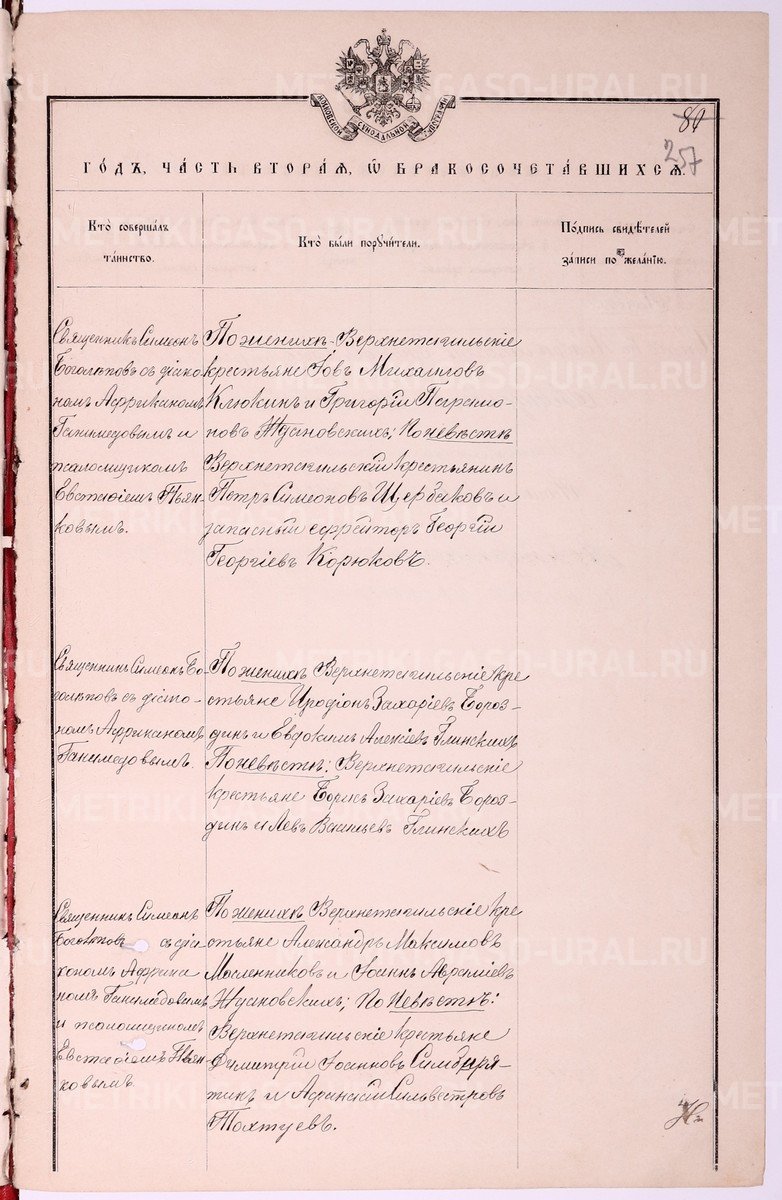 МОСКОВСКОЙ СѴНОДАЛЬНОЙ ТѴПОГРАФІИ
80
257
ГО́ДЪ, ЧА́СТЬ ВТОРА́Я, Ѿ БРАКОСОЧЕТА́ВШИХСЯ.
Кто̀ совершалъ
та́инство.
Кто̀ бы́ли пору̀чи́тели.
По́дпись свидѣ́телей
за́писи по жела́нїю.
Священникъ Симеонъ
Боголѣповъ съ діако-
номъ Африканомъ
Ганимедовымъ и
псаломщикомъ
Евстаѳіемъ Пьян-
ковымъ.
По женихѣ Верхнетагильскіе
крестьяне Іовъ Михаиловъ
Клюкинъ и Григорій Парѳенио-
новъ Ждановскихъ; По невѣстѣ
Верхнетагильскій крестьянинъ
Петръ Симеоновъ Щербаковъ и
запасный ефрейторъ Георгій
Георгіевъ Корюковъ.
Священникъ Симеонъ Бо-
голѣповъ съ діако-
номъ Африканомъ
Ганимедовымъ.
По женихѣ Верхнетагильскіе кре-
стьяне Иродіонъ Захаріевъ Бороз-
динъ и Евдокимъ Алексіевъ Глинскихъ
По невѣстѣ: Верхнетагильскіе
крестьяне Борисъ Захаріевъ Бороз-
динъ и Левъ Глинскихъ
Священникъ Симеонъ
Боголѣповъ съ діа
кономъ Африка
номъ Ганимедовымъ
и псаломщикомъ
Евстаѳіемъ Пьян
ковымъ.
По женихѣ Верхнетагильскіе кре
стьяне Александръ Максимовъ
Масленниковъ и Іоаннъ Авраміевъ
Ждановскихъ; По невѣстѣ:
Верхнетагильскіе крестьяне
Димитрій Іоанновъ Симбиря-
тинъ и Аѳанасій Сильвестровъ
Тохтуевъ.
METRIKI.GASO-URAL.RU